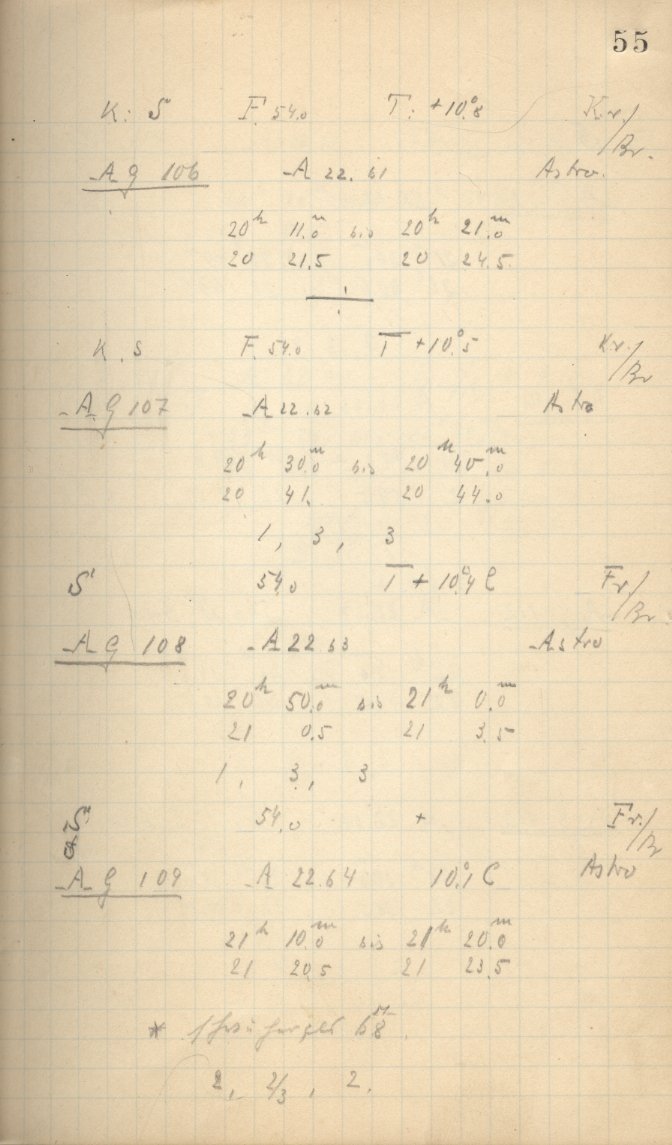 55
K: S F. 54.0 T: +10°.8 Kr./Br.
AG 106 A 22.61 Astro.
20h 11.0m bis 20h 21.0m
20 21.5 20 24.5
÷
K. S F. 54.0 T +10°.5 Kr./Br
AG 107 A 22.62 Astro
20h 30.0m bis 20h 40.0m
20 41. 20 44.0
1, 3, 3
S 54.0 T + 10°.4 C Fr./Br.
AG 108 A 22 63 Astro
20h 50.0m bis 21h 0.0m
21 0.5 21 3.5
1, 3, 3
S 54.0 + Fr./Br
AG 109 A 22.64 10.1 C Astro
21h 10.0m bis 21h 20.0m
21 20.5 21 23.5
*
2, 2/3, 2.